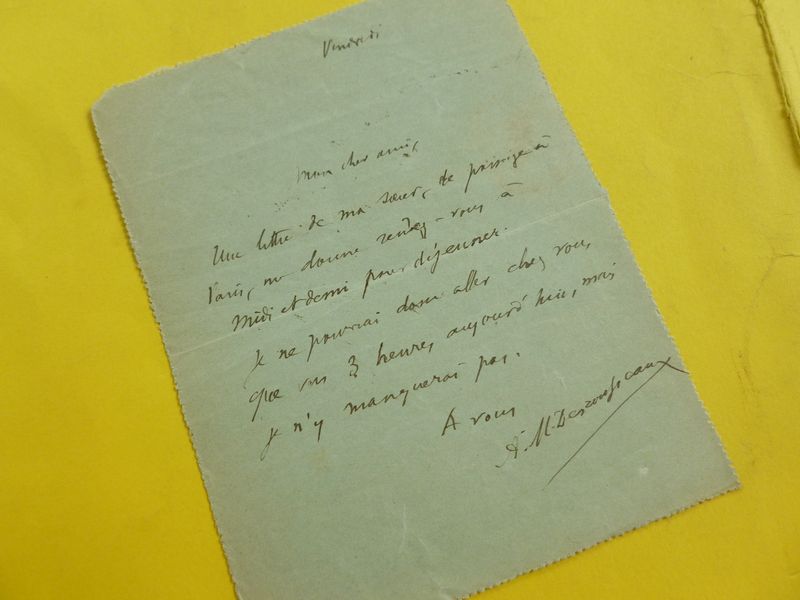 Vendredi
Mon cher ami,
Une lettre de ma sœur, de passage à
Paris, me donne rendez-vous à
Midi et demi pour déjeuner.
Je ne pourrai donc aller chez vous
que vers 3 heures aujourd'hui, mais
je n'y manquerai pas.
A vous
A. M. Desrousseaux